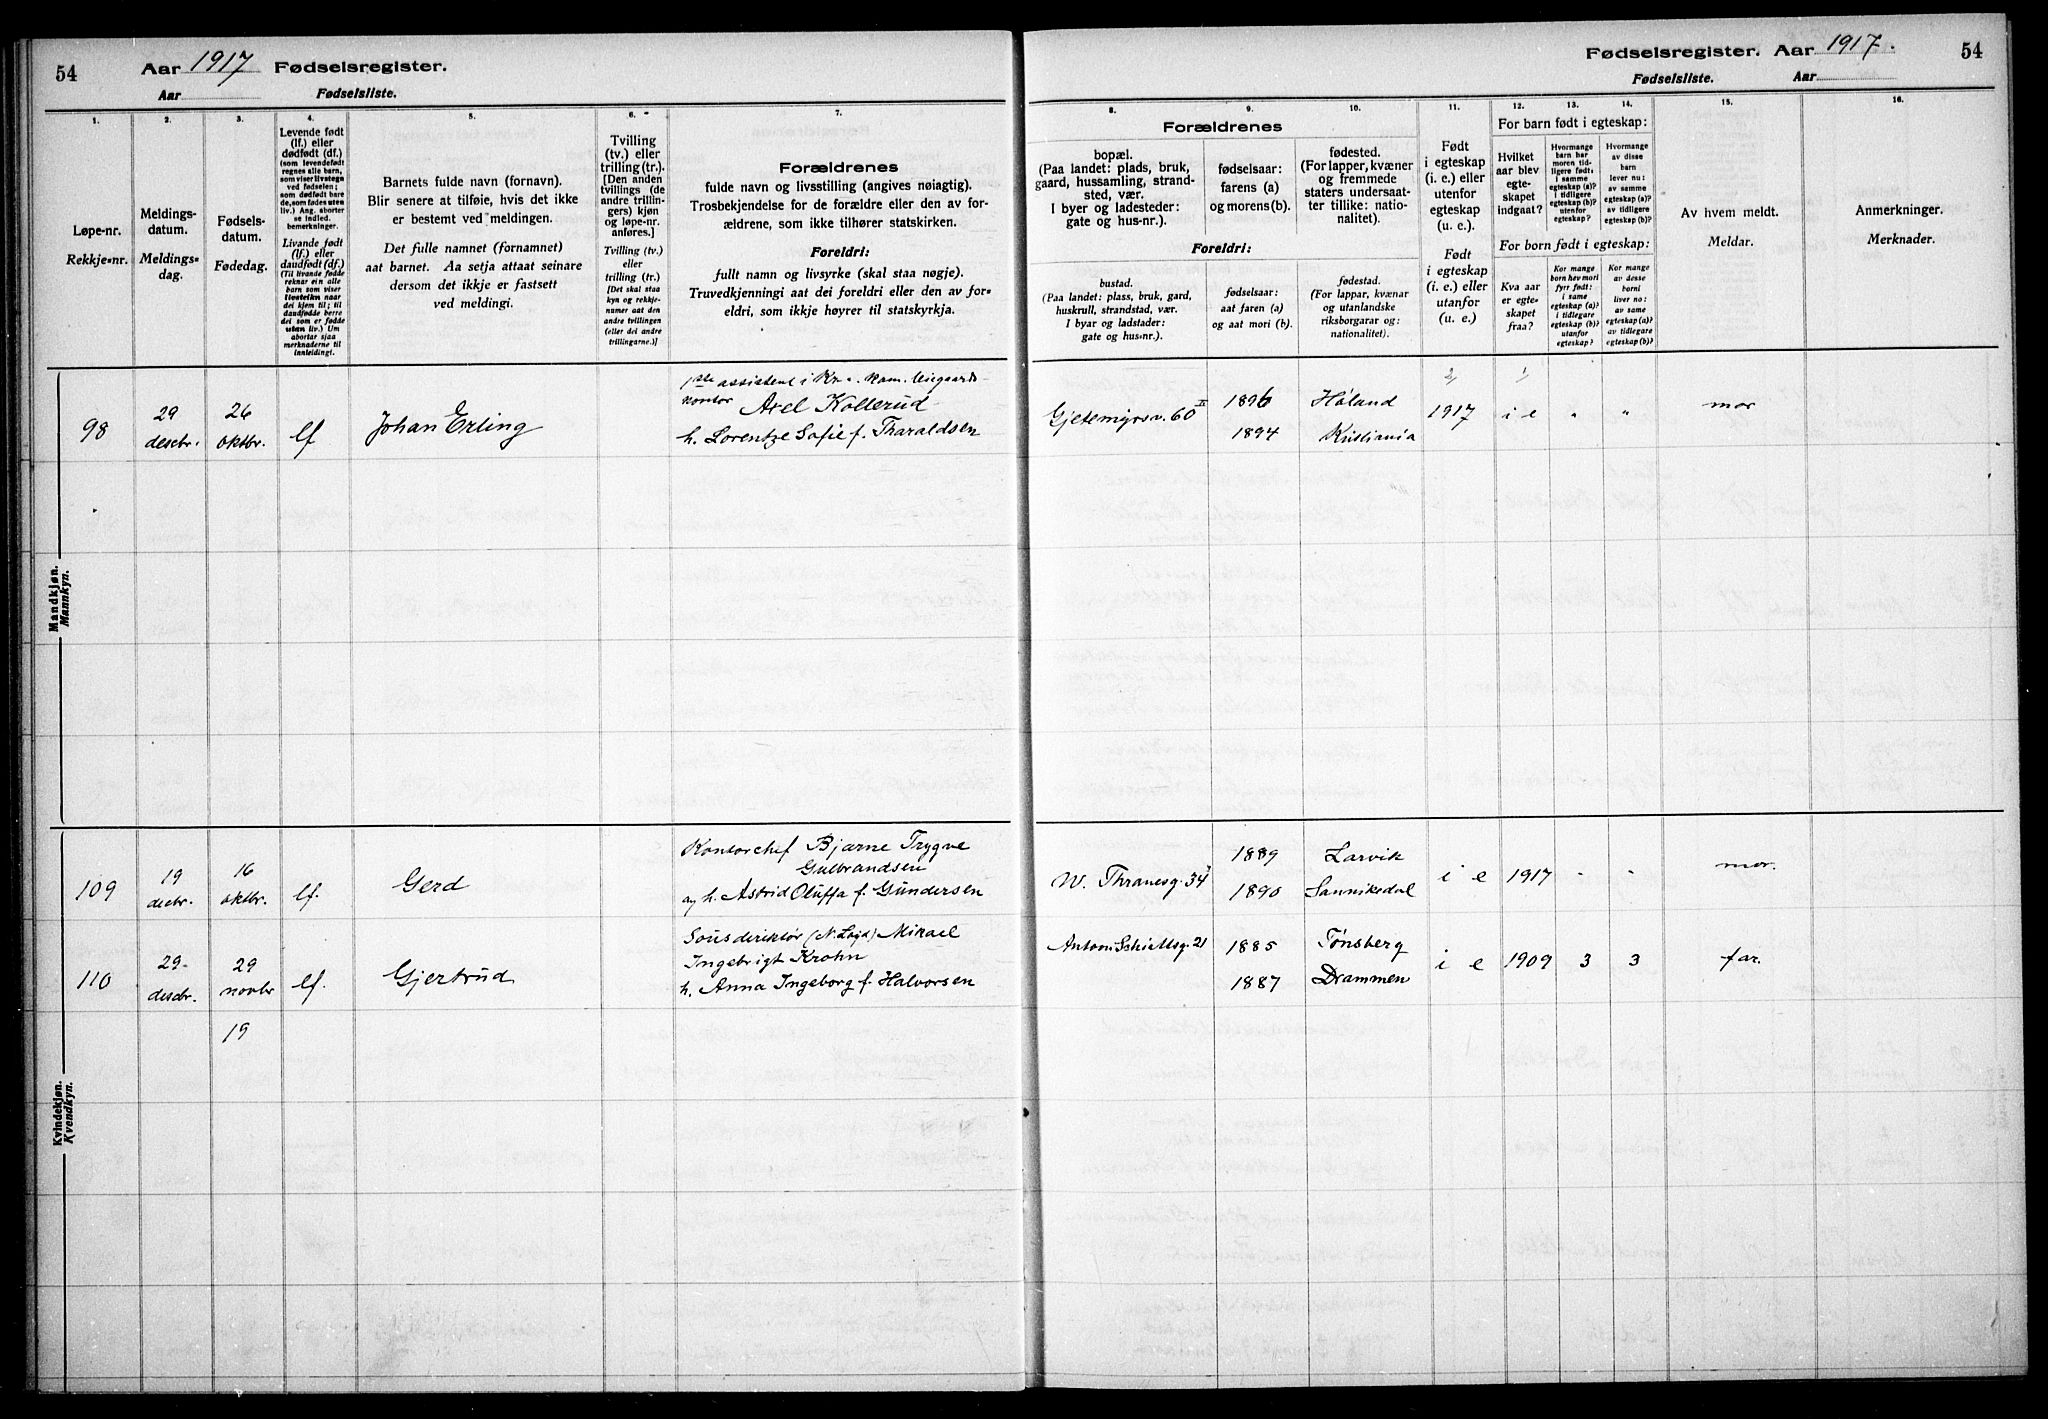 54
Aar 1917 Fødselsregister.
Aar Fødselsliste.
1.
Løpe-nr.
Rekkje-nr.
2.
Meldings-
datum.
Meldings-
dag.
3.
Fødsels-
datum.
Fødedag.
4.
Levende født
(lf.) eller
dødfødt (df.)
(som levendefødt
regnes alle barn,
som viser livstegn
ved fødselen;
som dødfødt bare
de, som fødes uten
liv.) Ang. aborter
se indled.
bemerkninger.
Livande født
(lf.) eller
daudfødt (df.)
(Til livande fødde
reknar ein alle
barn som viser
livsteikn naar
dei kjem til; til
daudfødde berre
dei som er fødde
utan liv.) Um
abortar sjaa
merknaderne til
innleidingi.
5.
Barnets fulde navn (fornavn).
Blir senere at tilføie, hvis det ikke
er bestemt ved meldingen.
Det fulle namnet (fornamnet)
aat barnet. Aa setja attaat seinare
dersom det ikkje er fastsett
ved meldingi.
6.
Tvilling
(tv.) eller
trilling (tr.).
[Den anden
tvillings (de
andre trillin-
gers) kjøn
og løpe-nr.
anføres.]
Tvilling (tv.)
eller
trilling (tr.)
[Det skal staa
kyn og rekkje-
numer aat den
andre tvillingen
(eller dei andre
trillingarne.)]
7.
Forældrenes
fulde navn og livsstilling (angives nøiagtig).
Trosbekjendelse for de forældre eller den av for-
ældrene, som ikke tilhører statskirken.
Foreldri:
fullt namn og livsyrke (skal staa nøgje).
Truvedkjenningi aat dei foreldri eller den av for-
eldri, som ikkje høyrer til statskyrkja.
Mandkjøn.
Mannkyn.
98
29
desebr.
26
oktbr.
lf
Johan Erling
1ste assistent i Kr.a. kom.
kontor Axel Kollerud
h. Lorentze Sofie f. Tharaldsen
Kvindekjøn.
Kvendkyn.
109
19
desbr.
16
oktbr.
lf.
Gerd
Kontorchef Bjarne Trygve
Gulbrandsen
og h. Astrid Oluffa f. Gundersen
110
29
desbr.
29
novbr
lf.
Gjertrud
Sousdirektør (N. Lojd) Mikael
Ingebrigt Krohn
h. Anna Ingeborg f. Halvorsen
19
Fødselsregister. Aar 1917.
54
Fødselsliste. Aar
8.
Forældrenes
bopæl.
(Paa landet: plads, bruk,
gaard, hussamling, strand-
sted, vær.
I byer og ladesteder:
gate og hus-nr.).
Foreldri:
bustad.
(Paa landet: plass, bruk, gard,
huskrull, strandstad, vær.
I byar og ladstader:
gate og hus-nr.).
9.
fødselsaar:
farens (a)
og morens (b).
fødselsaar:
aat faren (a)
og aat mori (b).
10.
fødested.
(For lapper, kvæner
og fremmede
staters undersaat-
ter tillike: natio-
nalitet).
fødestad.
(For lappar, kvænar
og utanlandske
riksborgarar og:
nationalitet).
11.
Født
i egteskap
(i. e.) eller
utenfor
egteskap
(u. e.).
Født
i egteskap
(i. e.) eller
utanfor
(u. e.).
For barn født i egteskap:
12.
Hvilket
aar blev
egte-
skapet
indgaat?
13.
Hvormange
barn har
moren tid-
ligere født:
i samme
egteskap (a)?
i tidligere
egteskap (b)?
utenfor
egteskap?
14.
Hvormange
av disse
barn
lever nu:
av samme
egteskap (a)?
av tidligere
egteskap (b)?
For born født i egteskap:
Kva aar
er egte-
skapet
fraa?
Kor mange
born hev mori
fyrr født:
i same
egteskap (a)?
i tidlegare
egteskap (b)?
utanfor
egteskap?
Kor mange
av desse
borni
liver no:
av same
egteskap (a)?
av tidlegare
egteskap (b)?
15.
Av hvem meldt.
Meldar.
16.
Anmerkninger.
Merknader.
Gjetemyrsv. 60 II
1896
1894
Høland
Kristiania
2/
1917
1/
i e
"
"
mor
W. Thranesg. 34
1889
1890
Larvik
Sannikedal
i e
1917
"
"
mor.
Anton Schiøttsg. 21
1885
1887
Tønsberg
Drammen
i e
1909
3
3
far.